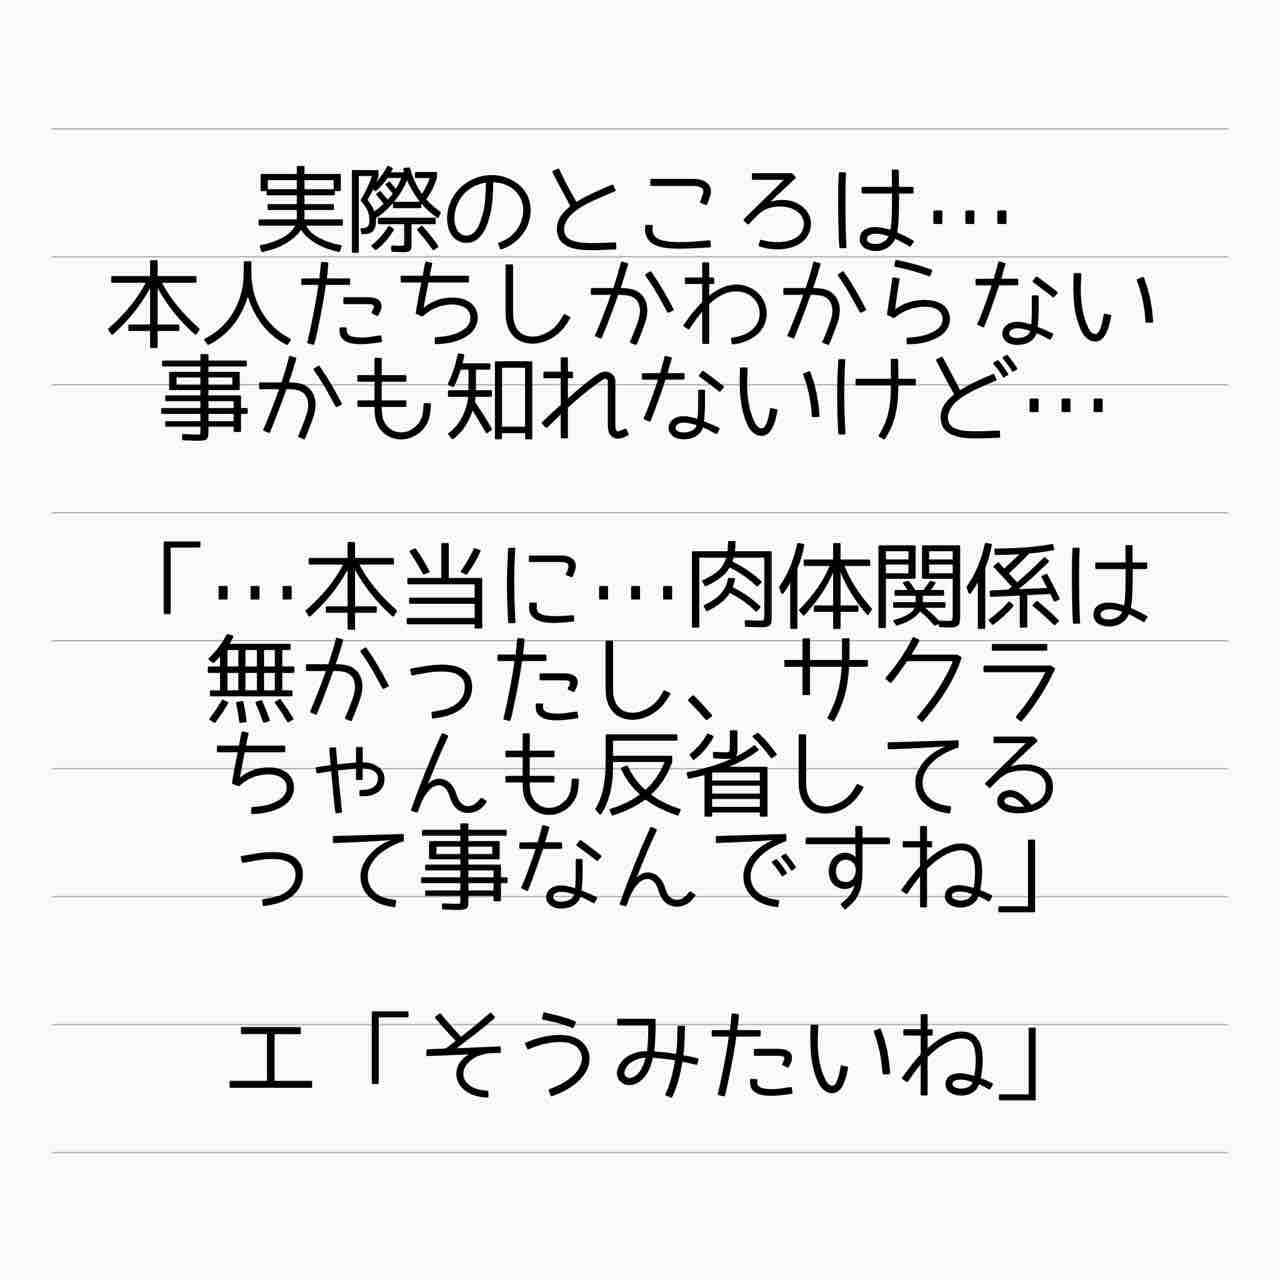 実際のところは…
本人たちしかわからない
事かも知れないけど…
「…本当に…肉体関係は
無かったし、サクラ
ちゃんも反省してる
って事なんですね」
エ「そうみたいね」